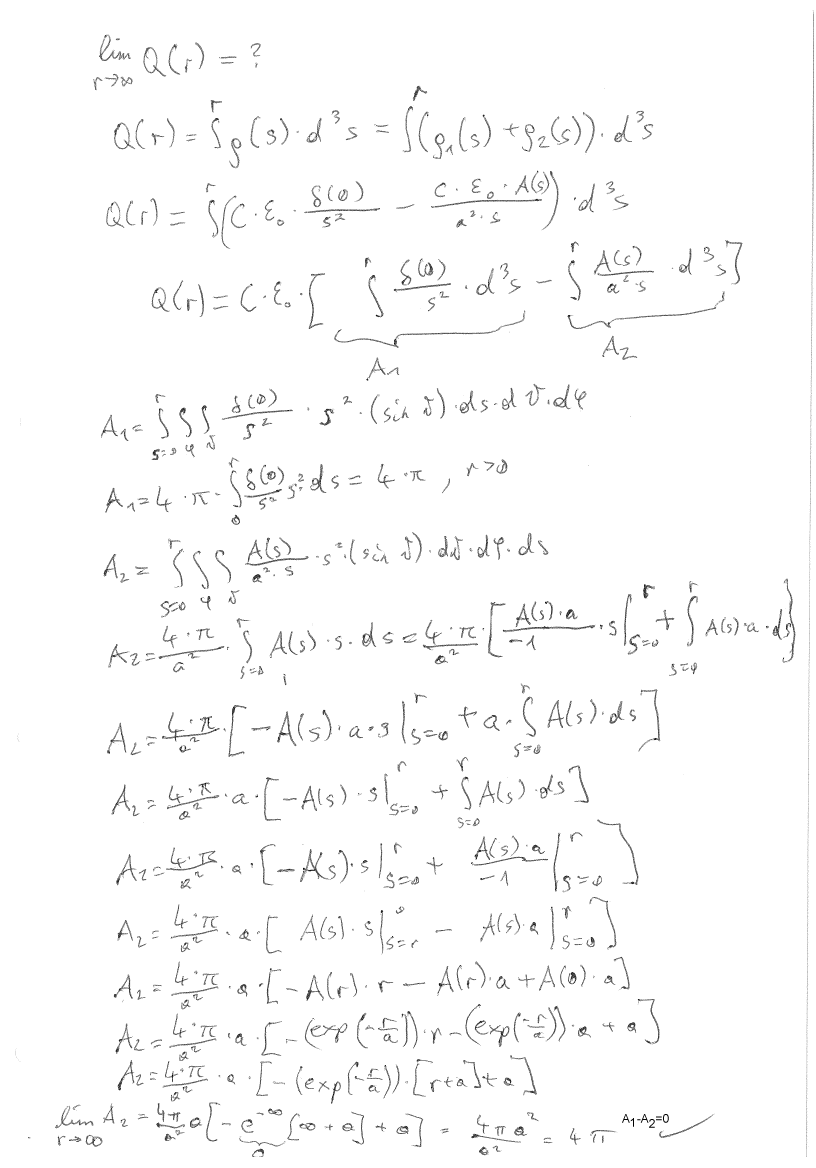 lim r→∞ Q(r) = ?
Q(r) = ∫^r ρ(s) · d³s = ∫^r (ρ₁(s) + ρ₂(s)) · d³s
Q(r) = ∫^r (C · ε₀ · δ(0)/s² − C · ε₀ · A(s)/(a² · s)) · d³s
Q(r) = C · ε₀ · [ ∫^r δ(0)/s² · d³s − ∫^r A(s)/(a² · s) · d³s ]
A₁ A₂
A₁ = ∫_{s=0}^r ∫_φ ∫_ϑ δ(0)/s² · s² · (sin ϑ) · ds · dϑ · dφ
A₁ = 4 · π · ∫_0^r δ(0)/s² s² · ds = 4 · π , r>0
A₂ = ∫_{s=0}^r ∫_φ ∫_ϑ A(s)/(a² · s) · s² · (sin ϑ) · dϑ · dφ · ds
A₂ = 4 · π/a² · ∫_{s=0}^r A(s) · s · ds = 4 · π/a² · [ A(s) · a/−1 · s |_{s=0}^r + ∫_{s=0}^r A(s) · a · ds ]
A₂ = 4 · π/a² · [ −A(s) · a · s |_{s=0}^r + a · ∫_{s=0}^r A(s) · ds ]
A₂ = 4 · π/a² · a · [ −A(s) · s |_{s=0}^r + ∫_{s=0}^r A(s) · ds ]
A₂ = 4 · π/a² · a · [ −A(s) · s |_{s=0}^r + A(s) · a/−1 |_{s=0}^r ]
A₂ = 4 · π/a² · a · [ A(s) · s |_{s=r}^0 − A(s) · a |_{s=0}^r ]
A₂ = 4 · π/a² · a · [ −A(r) · r − A(r) · a + A(0) · a ]
A₂ = 4 · π/a² · a · [ −(exp(−r/a)) · r − (exp(−r/a)) · a + a ]
A₂ = 4 · π/a² · a · [ −(exp(−r/a)) · [r+a] + a ]
lim r→∞ A₂ = 4π/a² a [ −e^{−∞} [∞ + a] + a ] = 4 π a²/a² = 4 π A₁-A₂=0 ✓
0